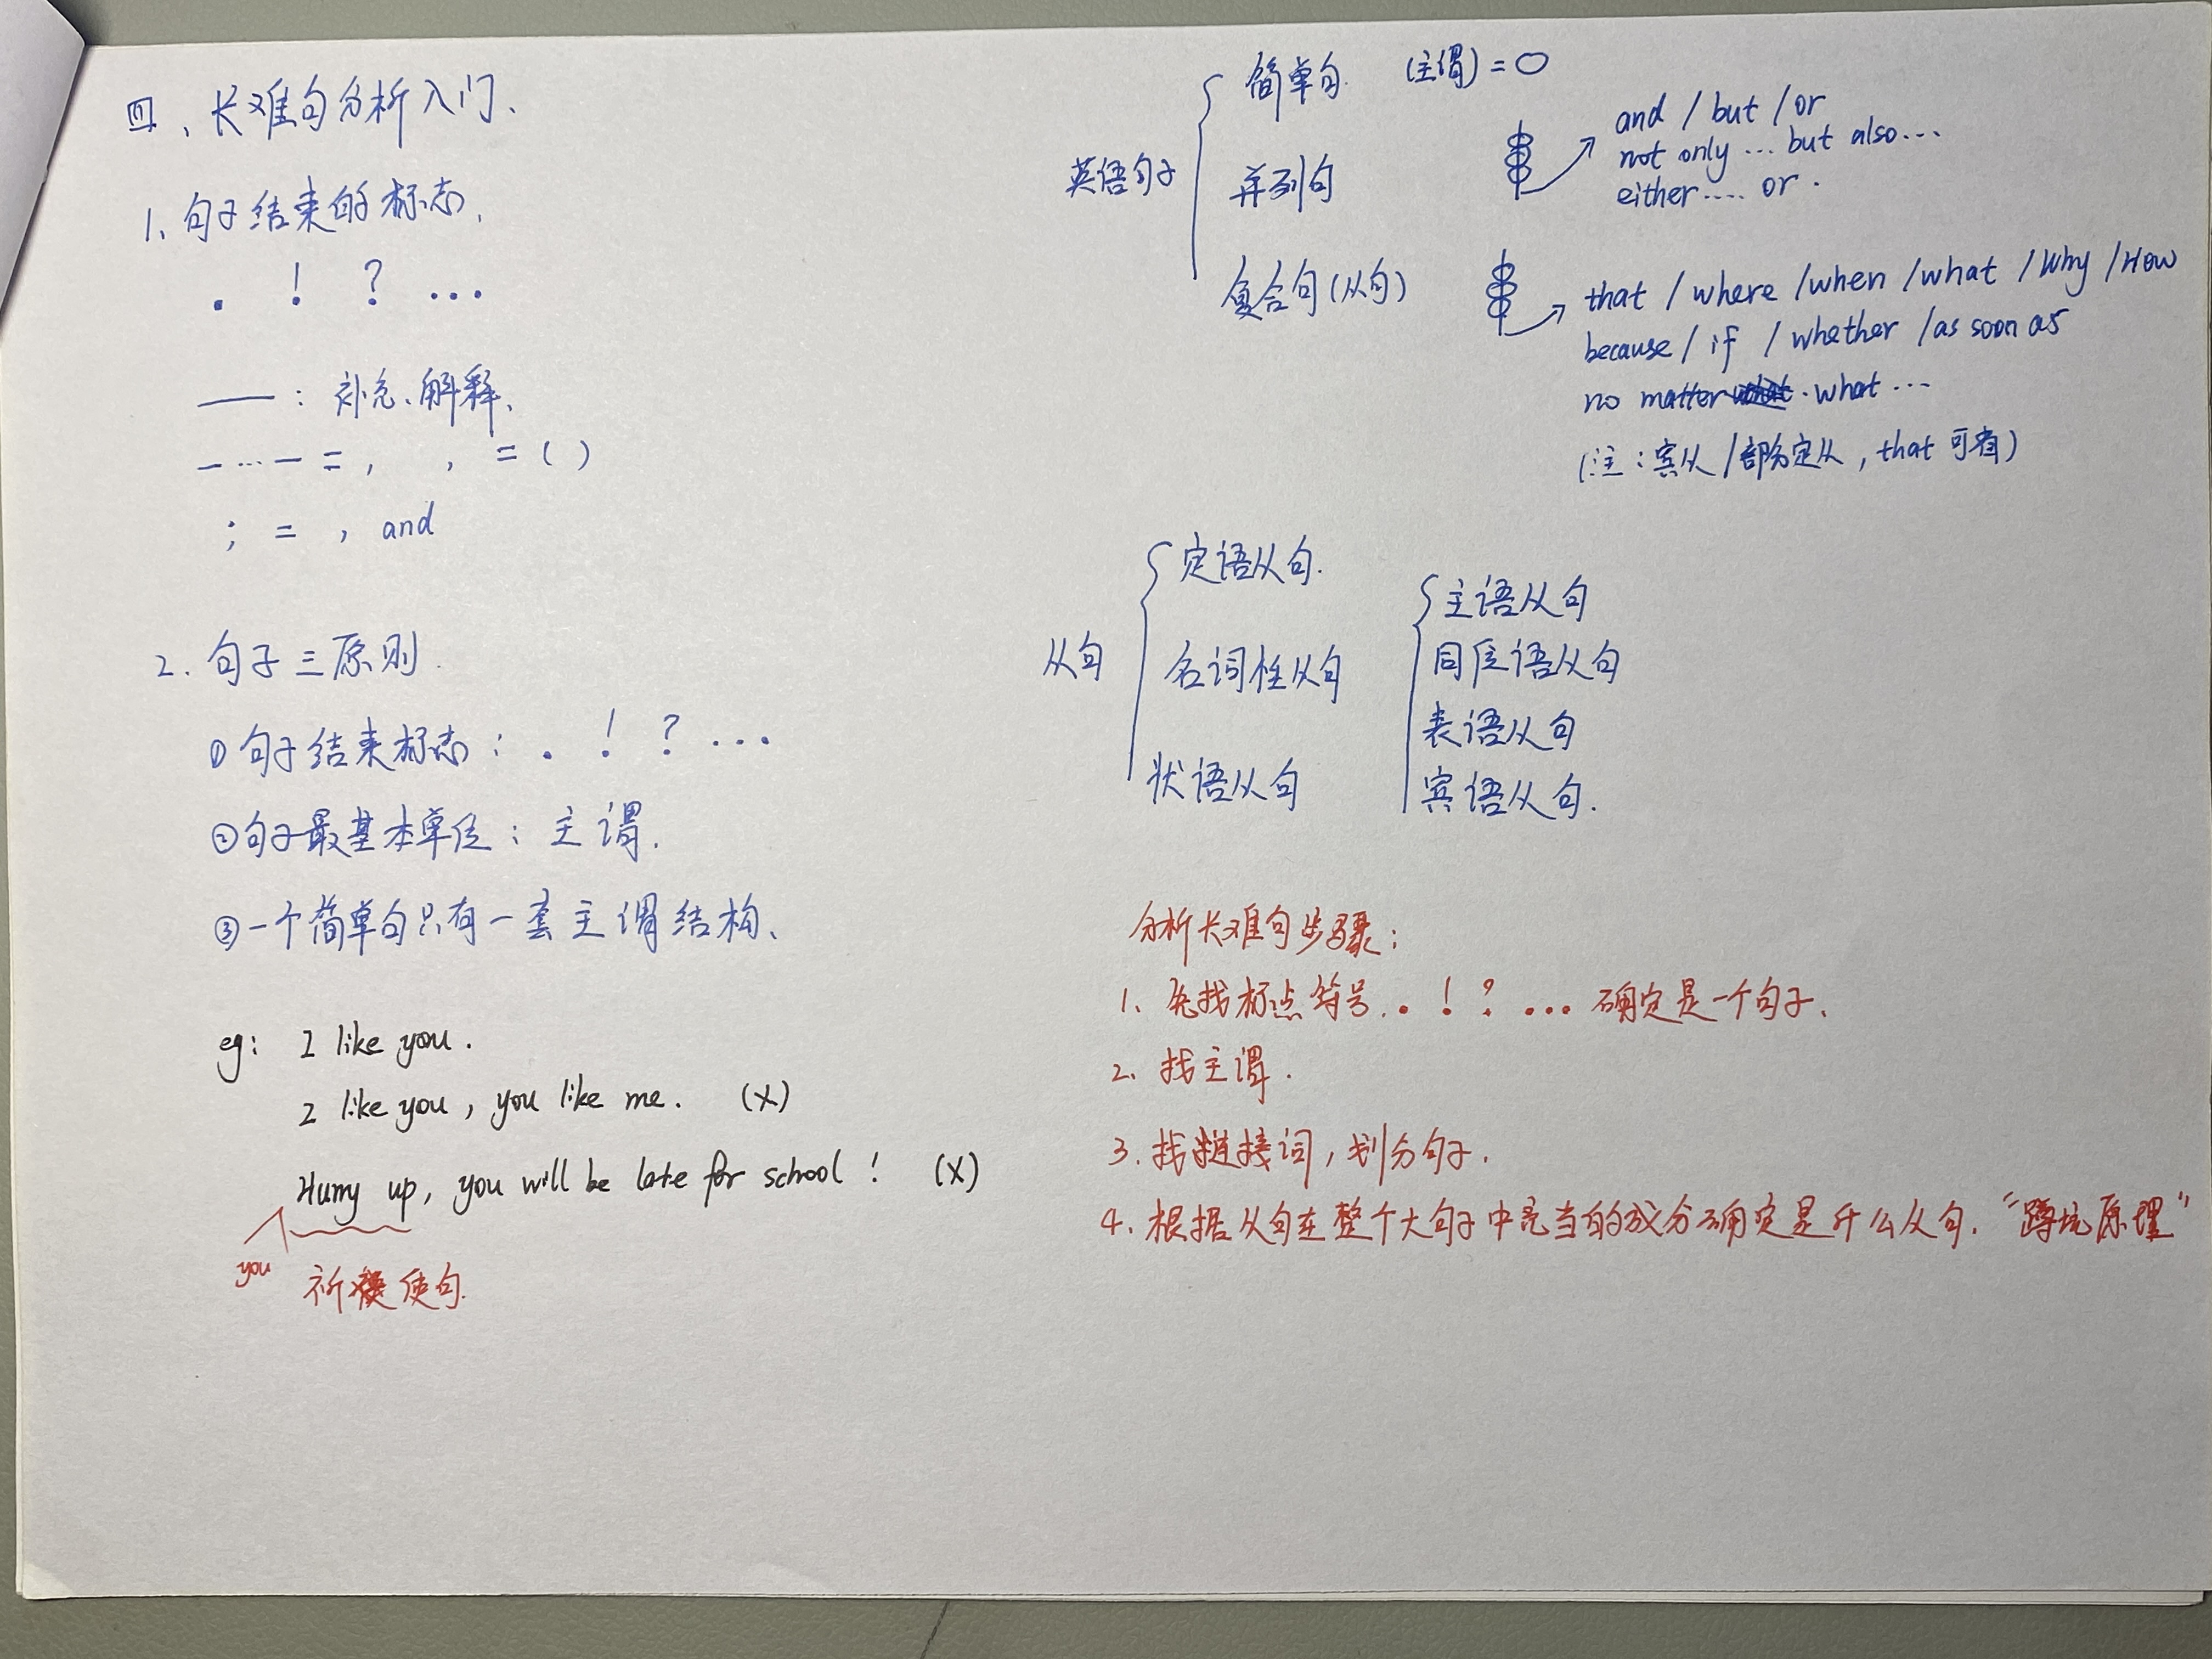 四、长难句分析入门、
1、句子结束的标志、
. ! ? ...
—— : 补充、解释、
— ... — = , , = ( )
; = , and
2. 句子三原则.
① 句子结束标志: . ! ? ...
② 句子最基本单位: 主谓.
③ 一个简单句只有一套主谓结构、
eg: I like you.
I like you, you like me. (X)
Hurry up, you will be late for school! (X)
you 祈使句.
英语句子
简单句. (主谓) = O
并列句
and / but / or
not only ... but also ...
either .... or .
复合句 (从句)
that / where / when / what / Why / How
because / if / whether / as soon as
no matter what ...
(注: 宾从 / 部分定从, that 可省)
从句
定语从句.
名词性从句
状语从句
主语从句
同位语从句
表语从句
宾语从句.
分析长难句步骤:
1. 先找标点符号. . ! ? ... 确定是一个句子.
2. 找主谓.
3. 找链接词, 划分句子.
4. 根据从句在整个大句子中充当的成分确定是什么从句. "蹲坑原理"